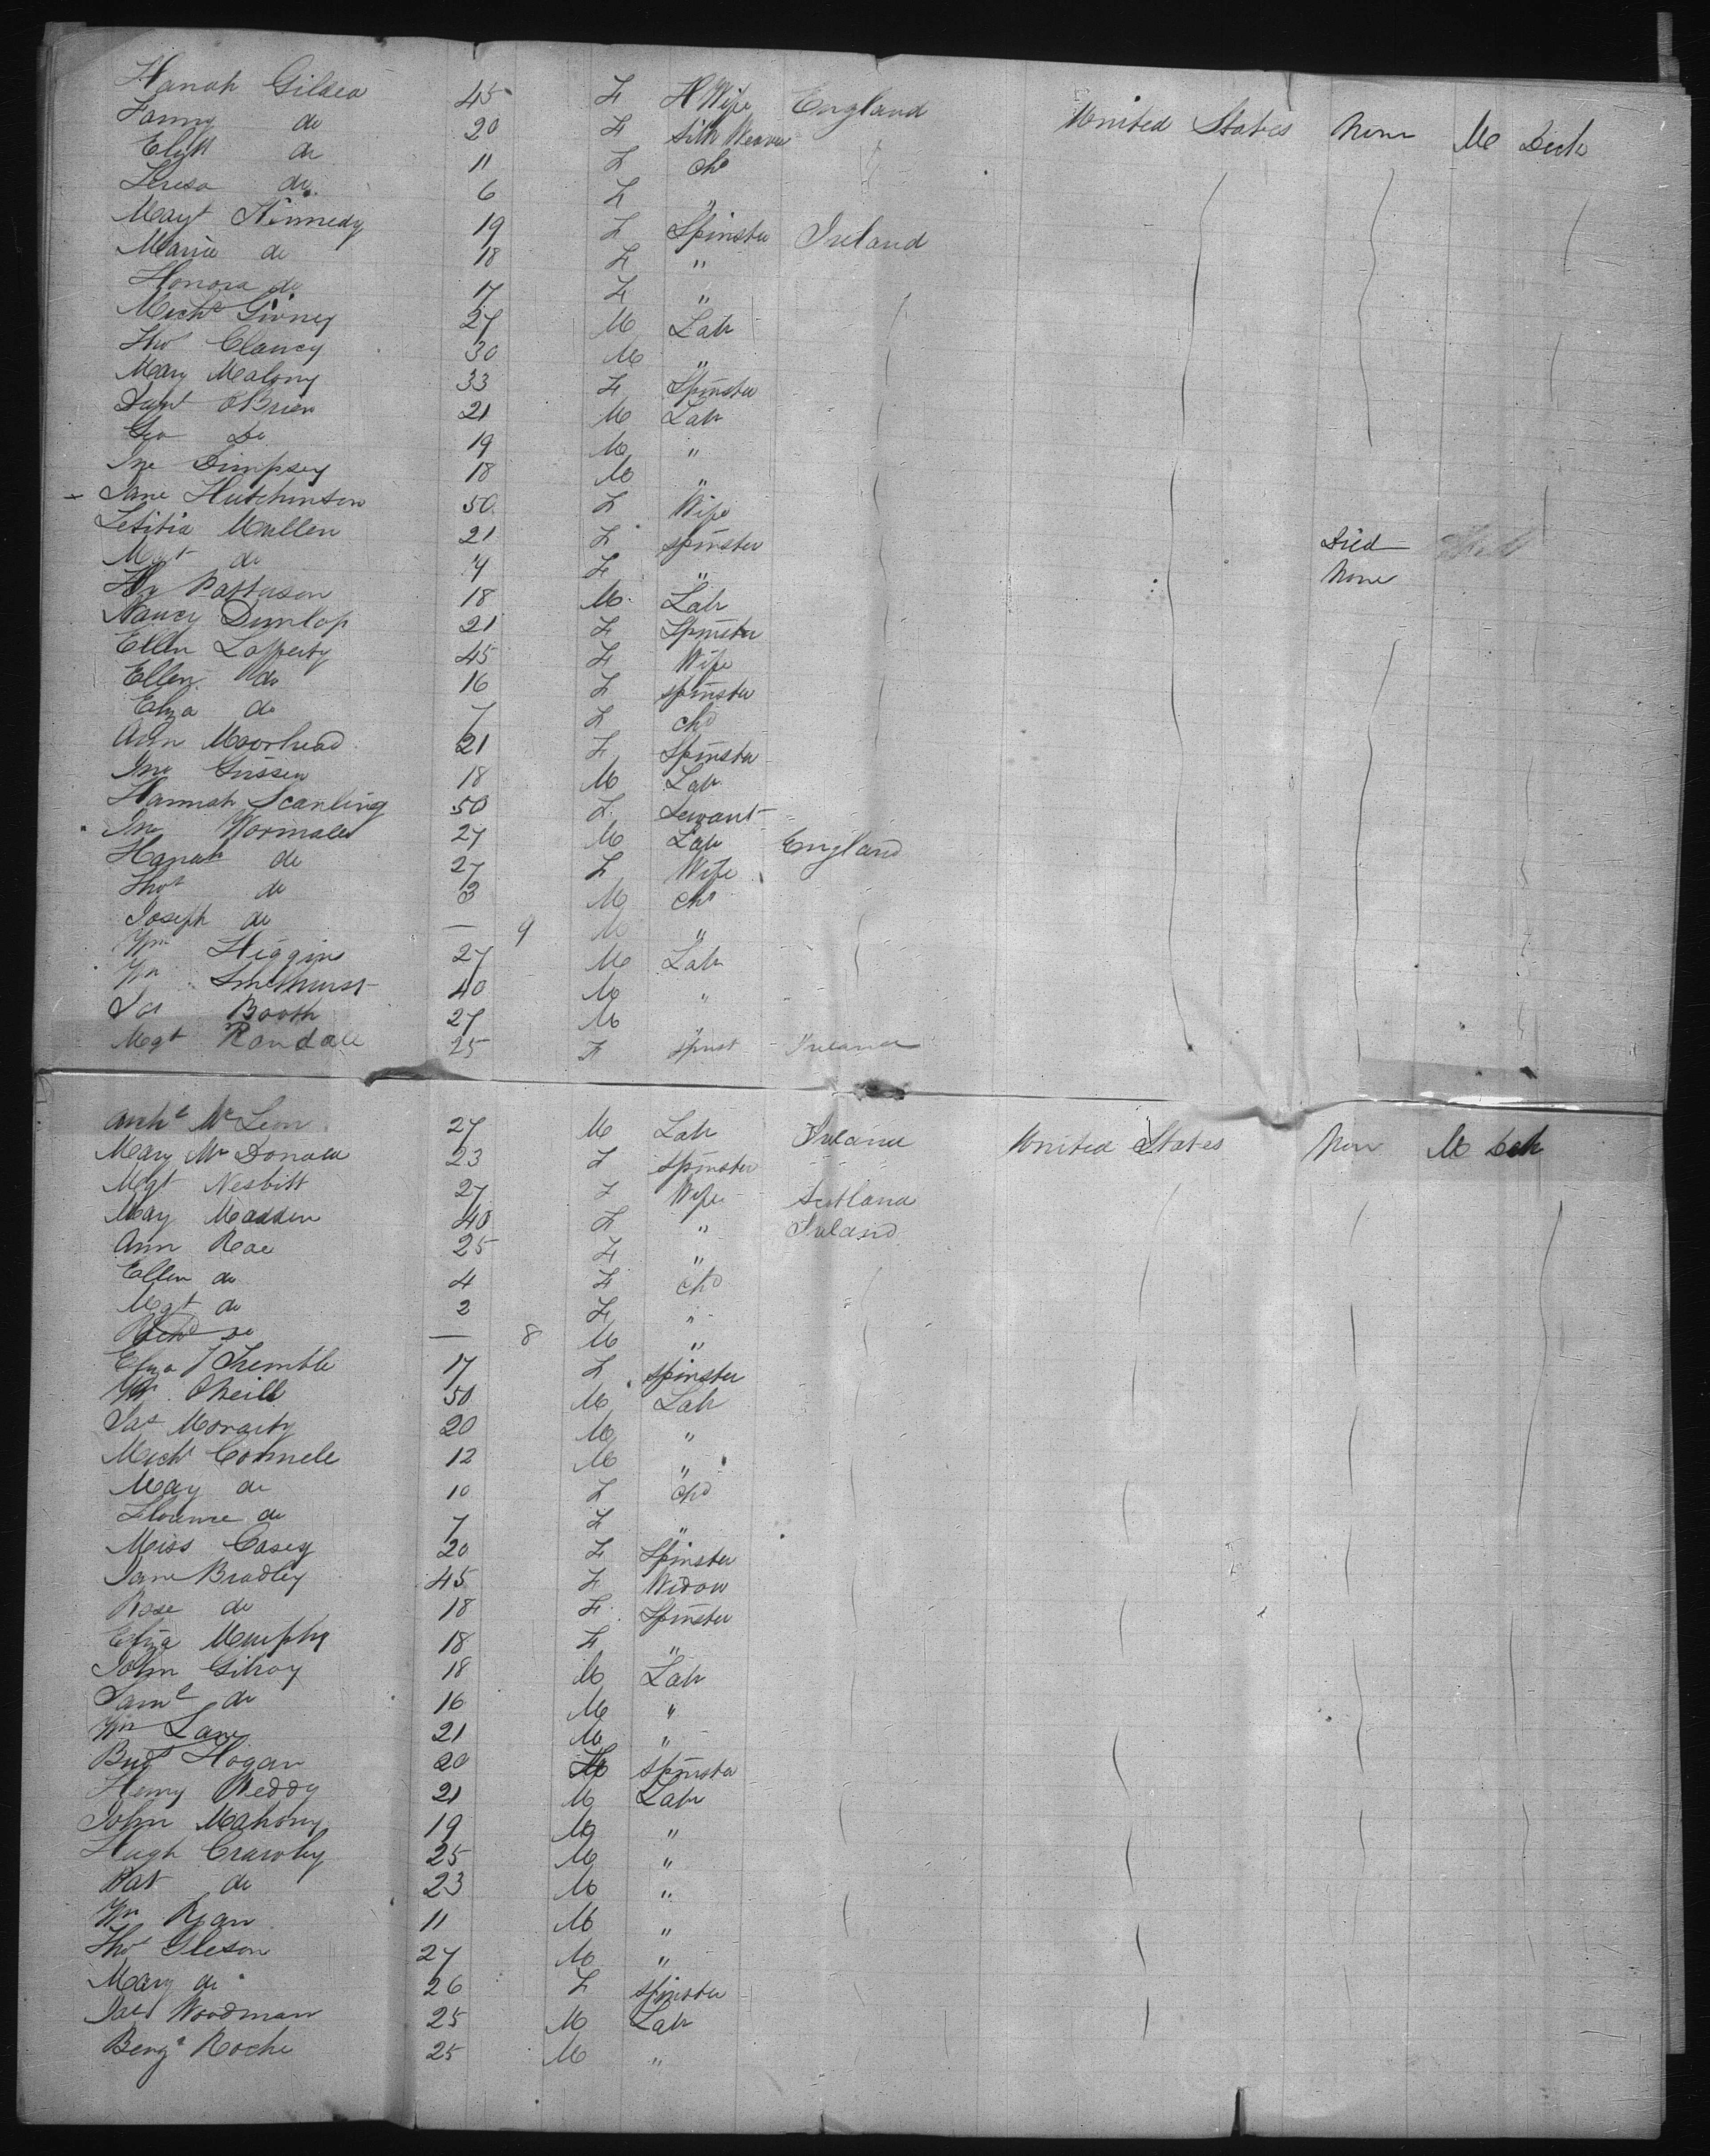 Hanah Gildea 45 F H Wife England United States None M Deck
Fanny do 20 F Silk Weaver
Elizth do 11 F chd
Teresa do 6 F "
Margt Kennedy 19 F Spinster Ireland
Maria do 18 F "
Honora do 17 F "
Michl 27 M Labr
Thos Clancy 30 M "
Mary Malony 33 F Spinster
OBrien 21 M Labr
Geo Do 19 M "
Jno Dimpsey 18 M "
Jane Hutchinson 50 F Wife
Letitia Mullen 21 F Spinster Died
Mgt do 4 F " None
Hy Patterson 18 M Labr
Nancy Dunlop 21 F Spinster
Ellen Lafferty 45 F Wife
Ellen do 16 F Spinster
Eliza do 7 F chd
Ann Moorhead 21 F Spinster
Jno 18 M Labr
Hannah Scanling 50 F Servant
Jno Wormald 27 M Labr England
Hanah do 27 F Wife
Thos do 3 M chd
Joseph do — 9 M "
Wm Higgins 27 M Labr
Wm Smethurst 40 M "
Jas Booth 27 M "
Mgt Randall 25 F Spinst Ireland
Archd McLeon 27 M Labr Ireland United States None M Deck
Mary McDonald 23 F Spinster
Mgt Nesbitt 27 F Wife Scotland
May Madden 40 F " Ireland
Ann Rae 25 F "
Ellen do 4 F chd
Mgt do 2 F "
Richd do — 8 M "
Eliza J Tremble 17 F Spinster
Wm ONeill 50 M Labr
Jas Moriarty 20 M "
Michl Connell 12 M "
May do 10 F chd
Florence do 7 F "
Miss Casey 20 F Spinster
Jane Bradley 45 F Widow
Rose do 18 F Spinster
Eliza Murphy 18 F "
John Gilroy 18 M Labr
Saml do 16 M "
Wm Lane 21 M "
Bridt Hogan 20 F Spinster
Henry Reddy 21 M Labr
John Mahony 19 M "
Hugh Crawley 25 M "
Pat do 23 M "
Wm Ryan 11 M "
Thos Gleson 27 M "
Mary do 26 F Spinster
Jas Woodman 25 M Labr
Benj Roche 25 M "